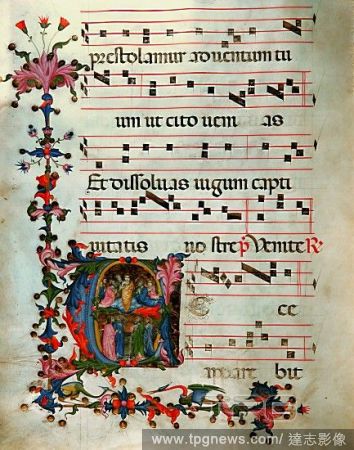 prestolamur adventum tu
um ut cito veni as
Et dissolvas iugum capti
vitatis no stre p̄ Venite R
E cc
mpare bit
www.tpgnews.com/ 達志影像